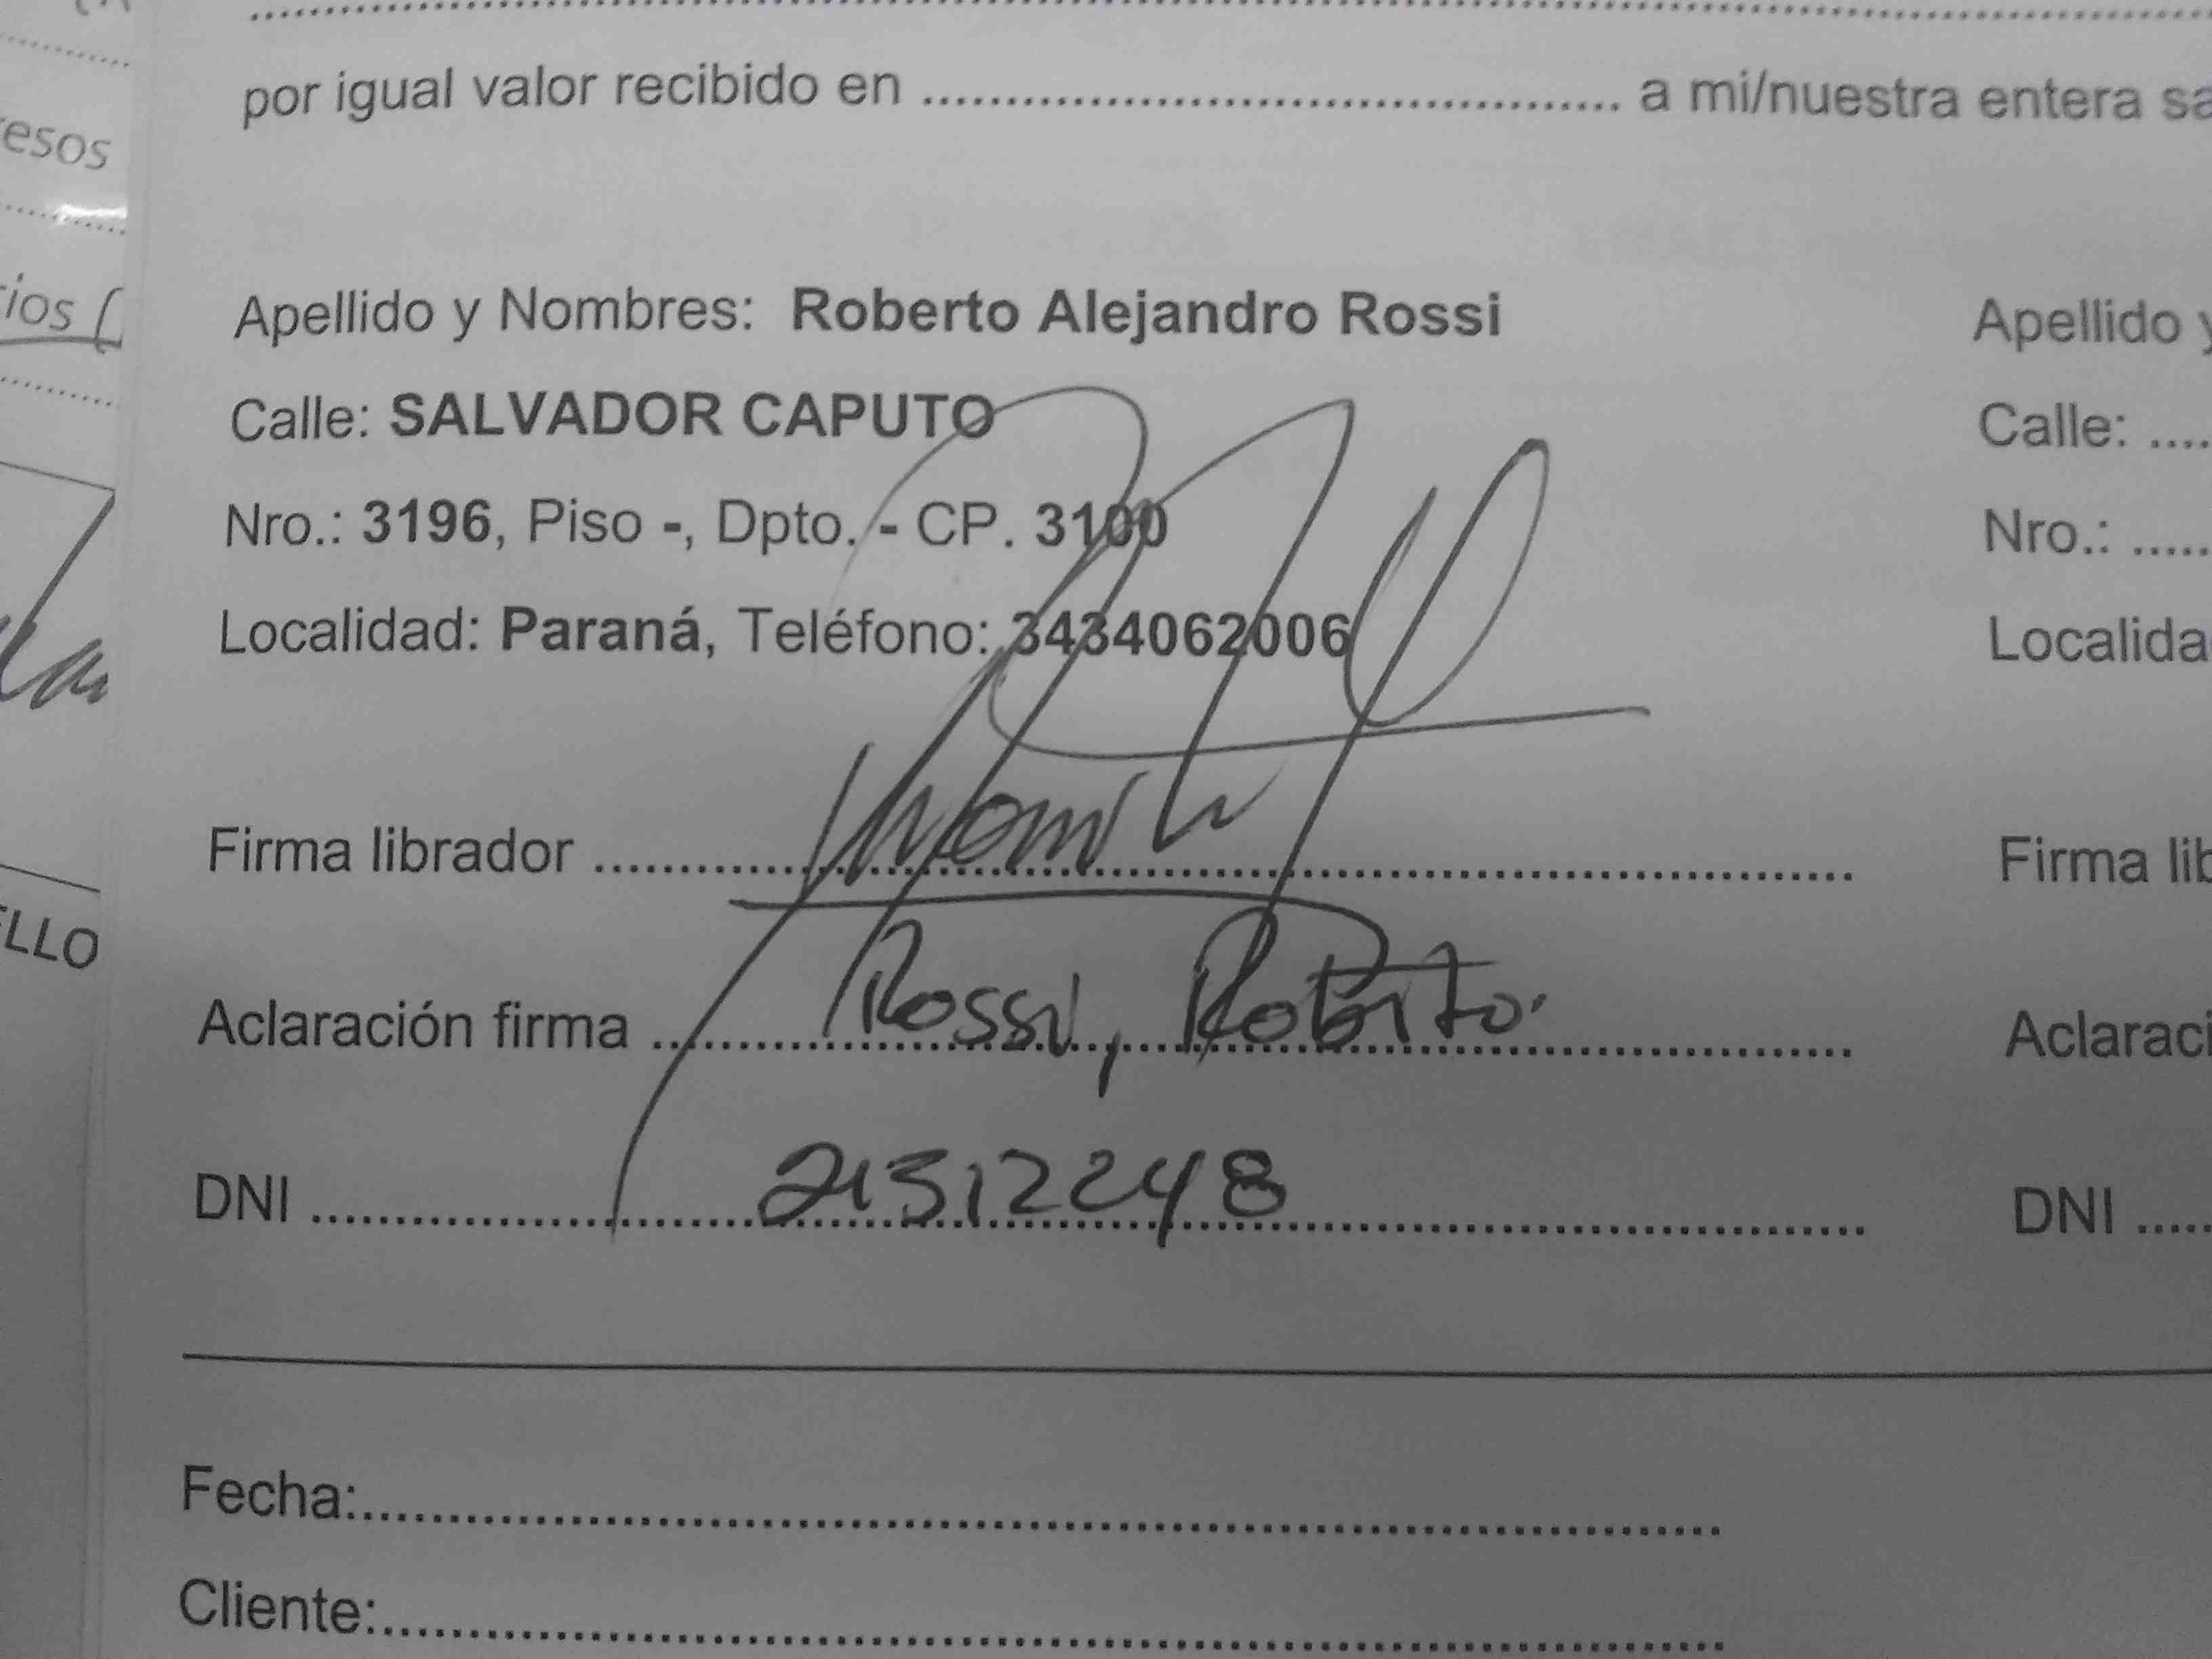 por igual valor recibido en ........................................ a mi/nuestra entera sa
esos
ios (
Apellido y Nombres: Roberto Alejandro Rossi
Apellido y
Calle: SALVADOR CAPUTO
Calle: ....
Nro.: 3196, Piso -, Dpto. - CP. 3100
Nro.: .....
Localidad: Paraná, Teléfono: 3434062006
Localida
Firma librador ........................................
Firma lib
ELLO
Aclaración firma Rossi, Roberto.
Aclaraci
DNI 21312248
DNI .....
Fecha:........................................
Cliente:........................................